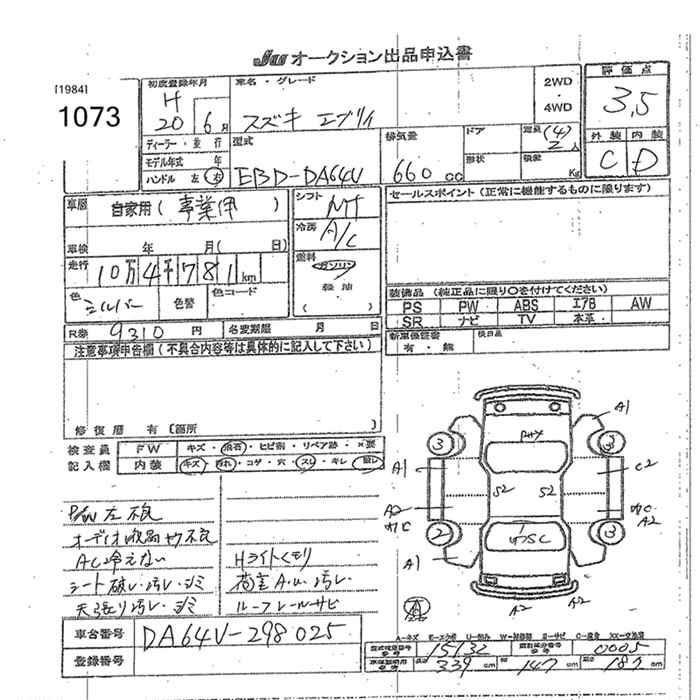 JU オークション出品申込書
[1984]
1073
初度登録年月
H
20 6月
車名・グレード
スズキ エブリイ
2WD
4WD
評価点
3,5
外装 内装
C D
ディーラー・並行
モデル年式 年
ハンドル 左 右
型式
EBD-DA64V
排気量
660 cc
ドア
形状
定員 (4)
2人
積載
Kg
車歴
自家用 (事業用)
シフト
MT
セールスポイント (正常に機能するものに限ります)
車検 年 月 (日)
冷房
A/C
走行
10万4千781km
燃料
ガソリン
軽油
( )
色
シルバー
色替
色コード
装備品 (純正品に限り○を付けてください)
PS PW ABS エアB AW
SR ナビ TV 本革
R券 9310 円
名変期限 月 日
新車保証書
有・無
後日品
注意事項申告欄 (不具合内容等は具体的に記入して下さい)
修復歴 有 (箇所 )
検査員
記入欄
FW
キズ・飛石・ヒビ割・リペア跡・×要
内装
キズ・汚れ・コゲ・穴・スレ・キレ・
P/W左不良
オーディオ液晶ヤケ不良
AC冷えない
シート破レ・汚レ・シミ
天張り汚レ・シミ
Hライトくもり
荷室A.U.汚レ
ルーフレールサビ
A1
3
3
A1
C2
S2
S2
A2
A2
2
3
A1
A2
A2
A
車台番号
DA64V-298025
登録番号
A-キズ U-凹み W-補修跡 S-サビ C-腐食 XX-交換済
型式指定番号
15132
類別区分番号
0005
長さ 339 cm
幅 147 cm
高さ 187 cm